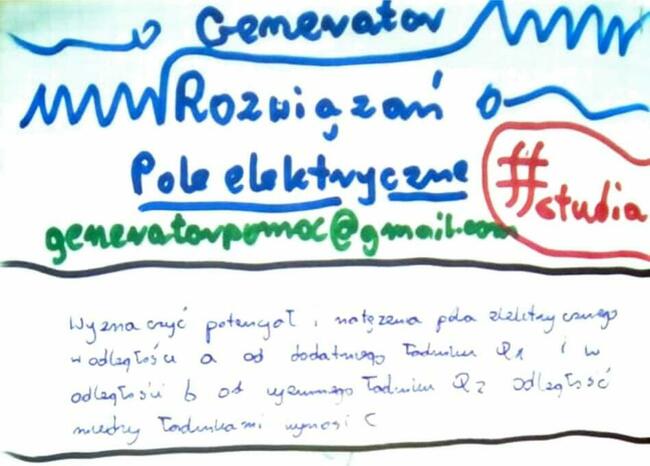 Generator
Rozwiązań
Pole elektryczne
#studia
generatorpomoc@gmail.com
Wyznaczyć potencjał i natężenia pola elektrycznego
w odległości a od dodatniego ładunku Q1 i w
odległości b od ujemnego ładunku Q2 odległość
między ładunkami wynosi C